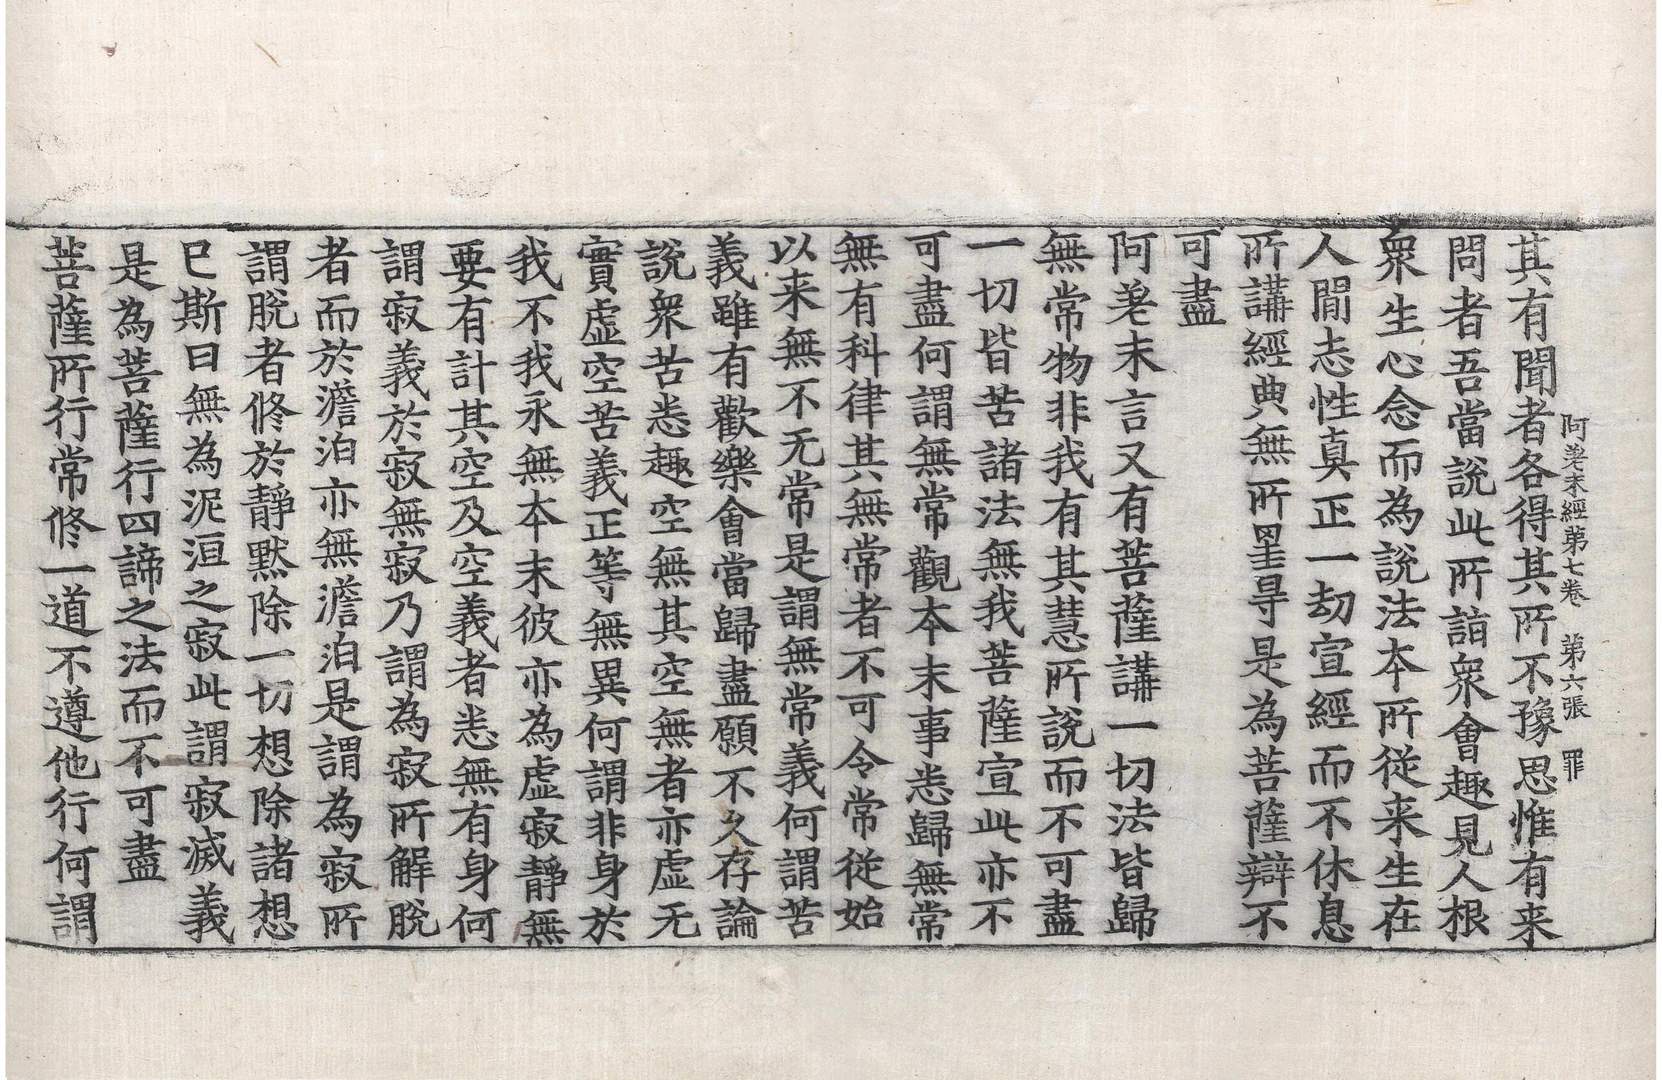 阿差末經第七卷　第六張　罪
其有聞者各得其所不豫思惟有来
問者吾當說此所詣衆會趣見人根
衆生心念而為說法本所從来生在
人間志性真正一劫宣經而不休息
所講經典無所罣㝵是為菩薩辯不
可盡
阿差末言又有菩薩講一切法皆歸
無常物非我有其慧所說而不可盡
一切皆苦諸法無我菩薩宣此亦不
可盡何謂無常觀本末事悉歸無常
無有科律其無常者不可令常從始
以来無不无常是謂無常義何謂苦
義雖有歡樂會當歸盡願不久存論
說衆苦悉趣空無其空無者亦虛无
實虛空苦義正等無異何謂非身於
我不我永無本末彼亦為虛寂靜無
要有計其空及空義者悉無有身何
謂寂義於寂無寂乃謂為寂所解脫
者而於澹泊亦無澹泊是謂為寂所
謂脫者脩於靜默除一切想除諸想
已斯曰無為泥洹之寂此謂寂滅義
是為菩薩行四諦之法而不可盡
菩薩所行常脩一道不遵他行何謂